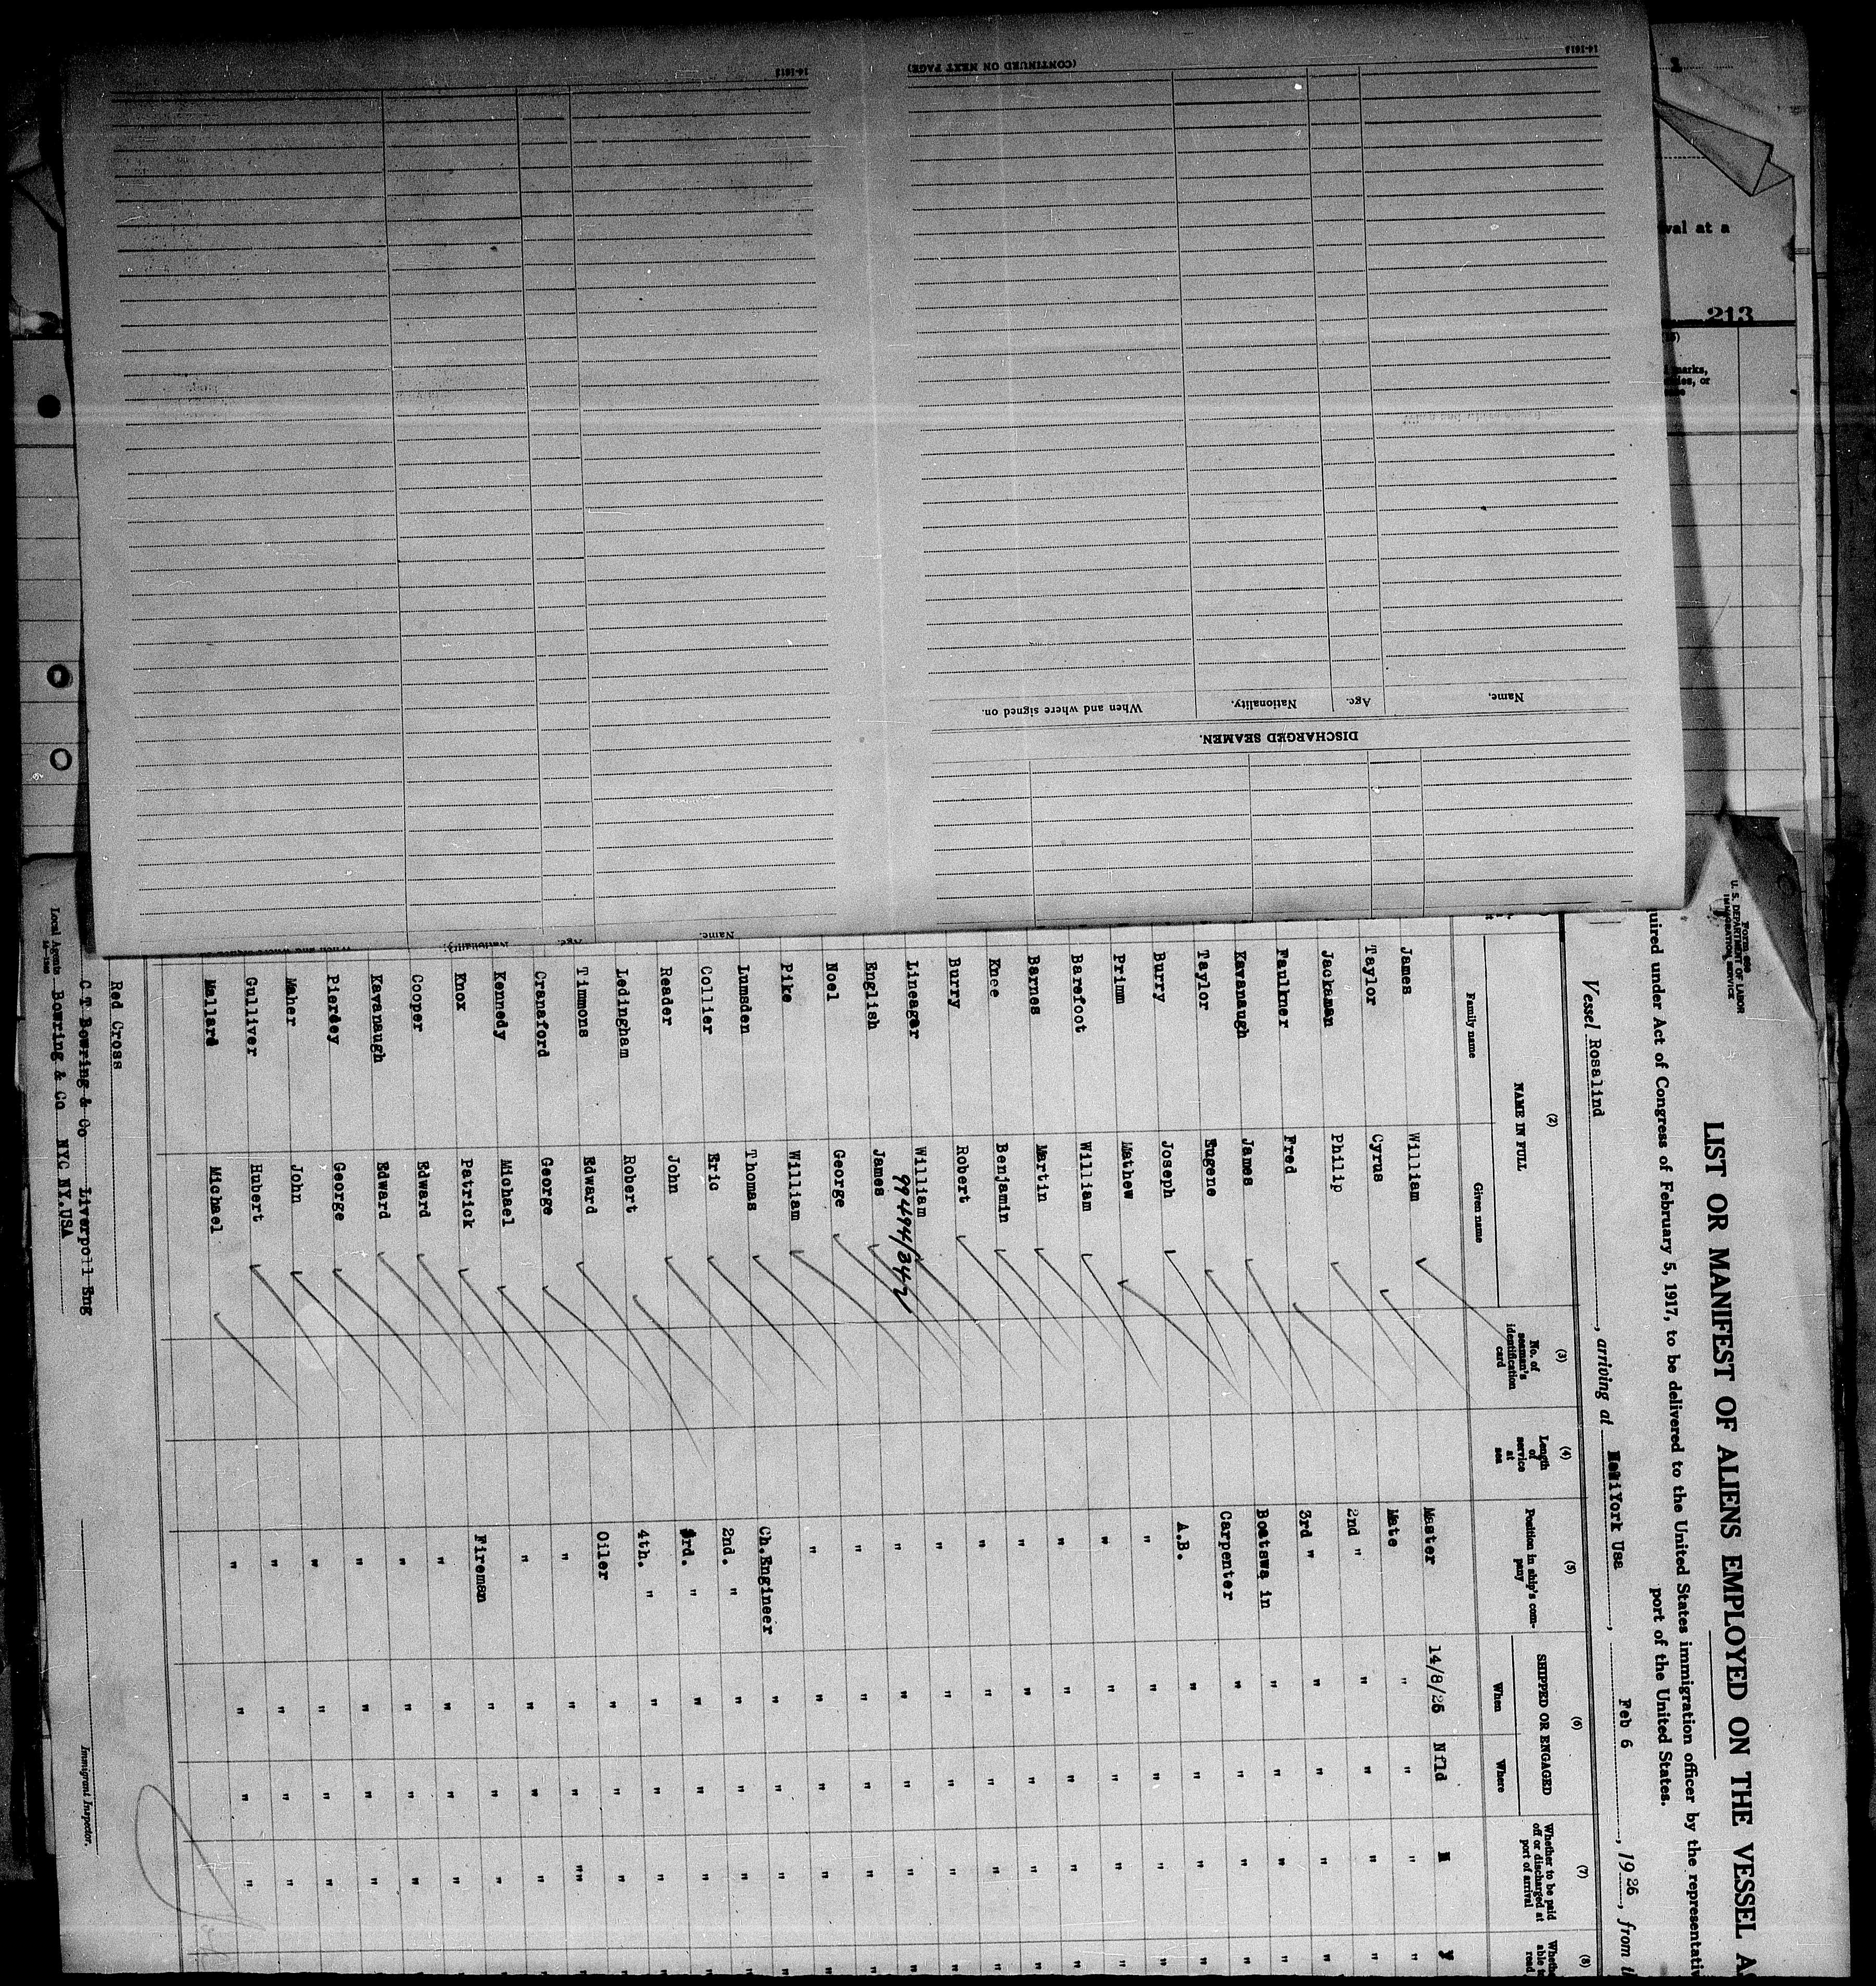 Form 689
U. S. DEPARTMENT OF LABOR
IMMIGRATION SERVICE
LIST OR MANIFEST OF ALIENS EMPLOYED ON THE VESSEL A
uired under Act of Congress of February 5, 1917, to be delivered to the United States immigration officer by the representativ
port of the United States.
Vessel Rosalind, arriving at New York Usa, Feb 6, 1926, from
(2) (3) (4) (5) (6) (7) (8)
NAME IN FULL
Family name Given name
No. of seaman's identification card
Length of service at sea
Position in ship's company
SHIPPED OR ENGAGED
When Where
Whether to be paid off or discharged at port of arrival
Whethe able t read
James William Master 14/8/25 Nfld N Y
Taylor Cyrus Mate " " " "
Jackaman Philip 2nd " " " " "
Faulkner Fred 3rd " " " " "
Kavanaugh James Boatswa in " " " "
Taylor Eugene Carpenter " " " "
Burry Joseph A.B. " " " "
Primm Mathew " " " " "
Barefoot William " " " " "
Barnes Martin " " " " "
Knee Benjamin " " " " "
Burry Robert " " " " "
Lineager William " " " " "
99494/347
English James " " " " "
Noel George " " " " "
Pike William " " " " "
Lumsden Thomas Ch.Engineer " " " "
Collier Eric 2nd. " " " " "
Reader John 3rd. " " " " "
Ledingham Robert 4th. " " " " "
Timmons Edward Oiler " " " "
Cranaford George " " " " "
Kennedy Michael " " " " "
Knox Patrick Fireman " " " "
Cooper Edward " " " " "
Kavanaugh Edward " " " " "
Piercey George " " " " "
Maher John " " " " "
Gulliver Hubert " " " " "
Mallard Michael " " " " "
Red Cross
C T Bowring & Co Liverpoll Eng
Local Agents Bowring & Co NYC NY.USA
Immigrant Inspector.
DISCHARGED SEAMEN.
Name. Age. Nationality. When and where signed on.
(CONTINUED ON NEXT PAGE)
14-1615
Name. Age. Nationality. When and where signed on.
14-1615
1
val at a
213
marks,
or